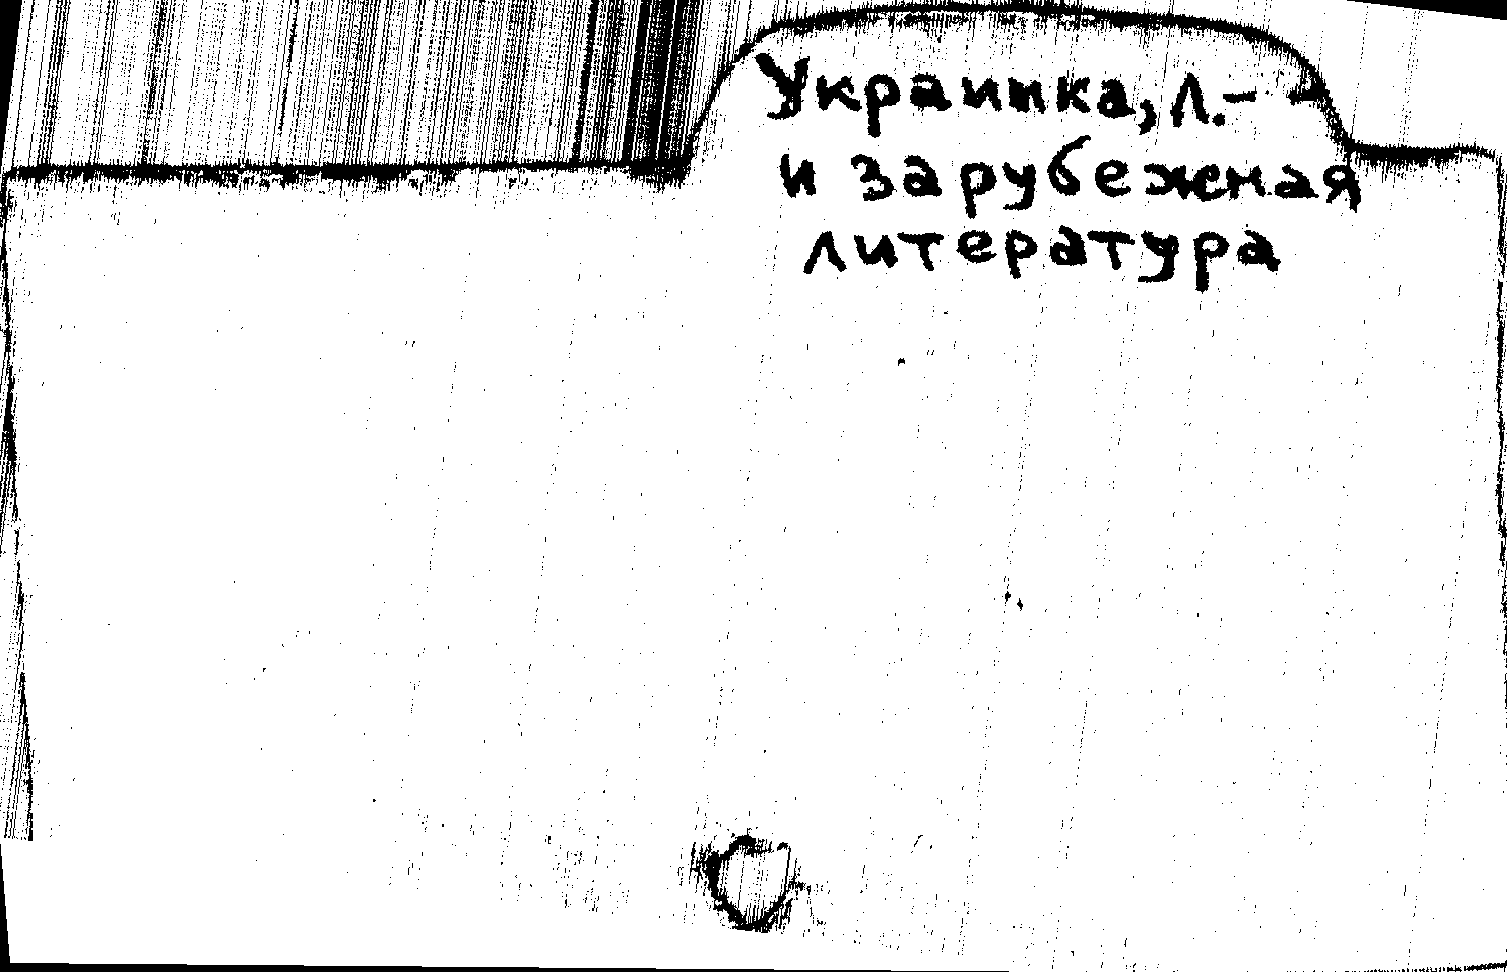 Украинка, Л. –
и зарубежная
литература